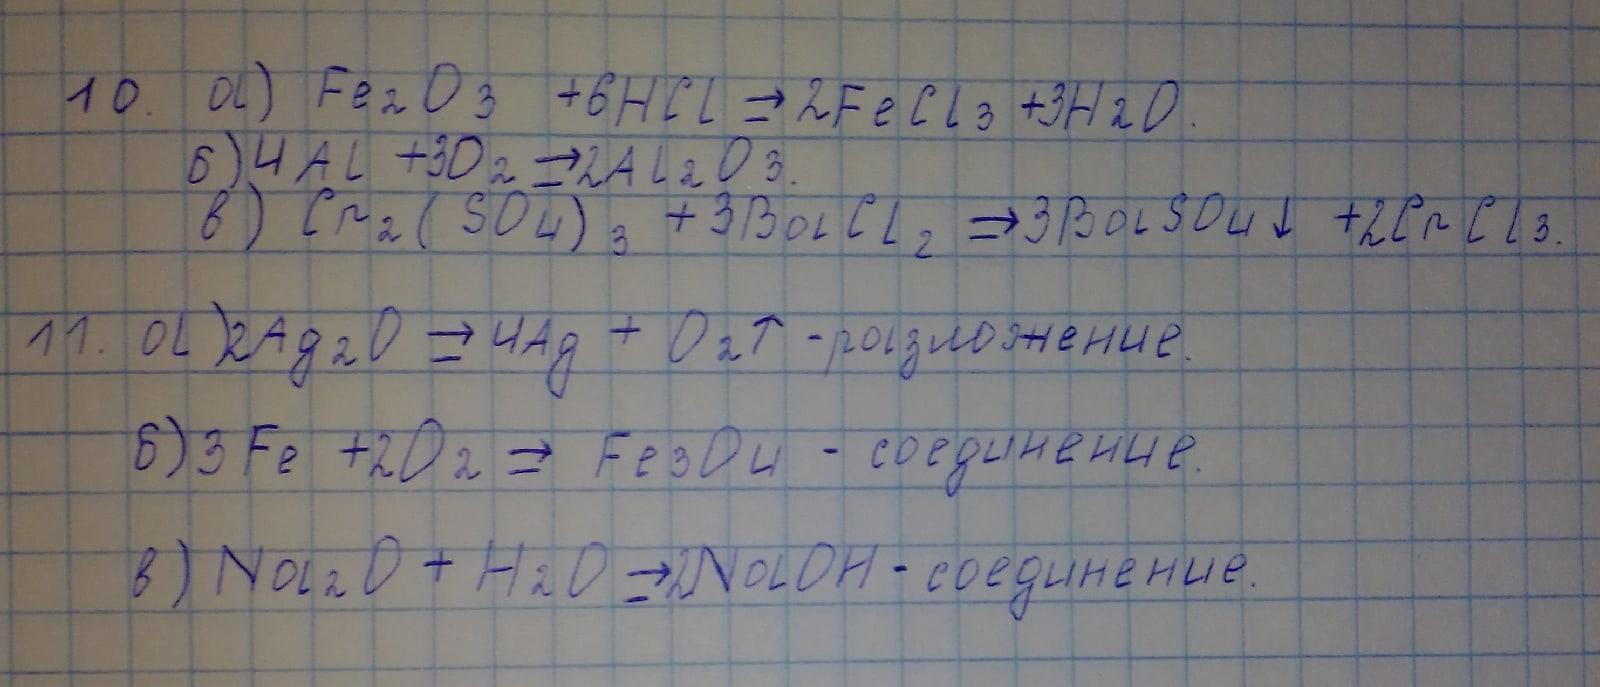 10. а) Fe₂O₃ +6HCl ⇒ 2FeCl₃ +3H₂O.
б) 4Al +3O₂ ⇒ 2Al₂O₃.
в) Cr₂(SO₄)₃ +3BaCl₂ ⇒ 3BaSO₄↓ +2CrCl₃.
11. а) 2Ag₂O ⇒ 4Ag + O₂↑ - разложение.
б) 3Fe +2O₂ ⇒ Fe₃O₄ - соединение.
в) Na₂O + H₂O ⇒ 2NaOH - соединение.